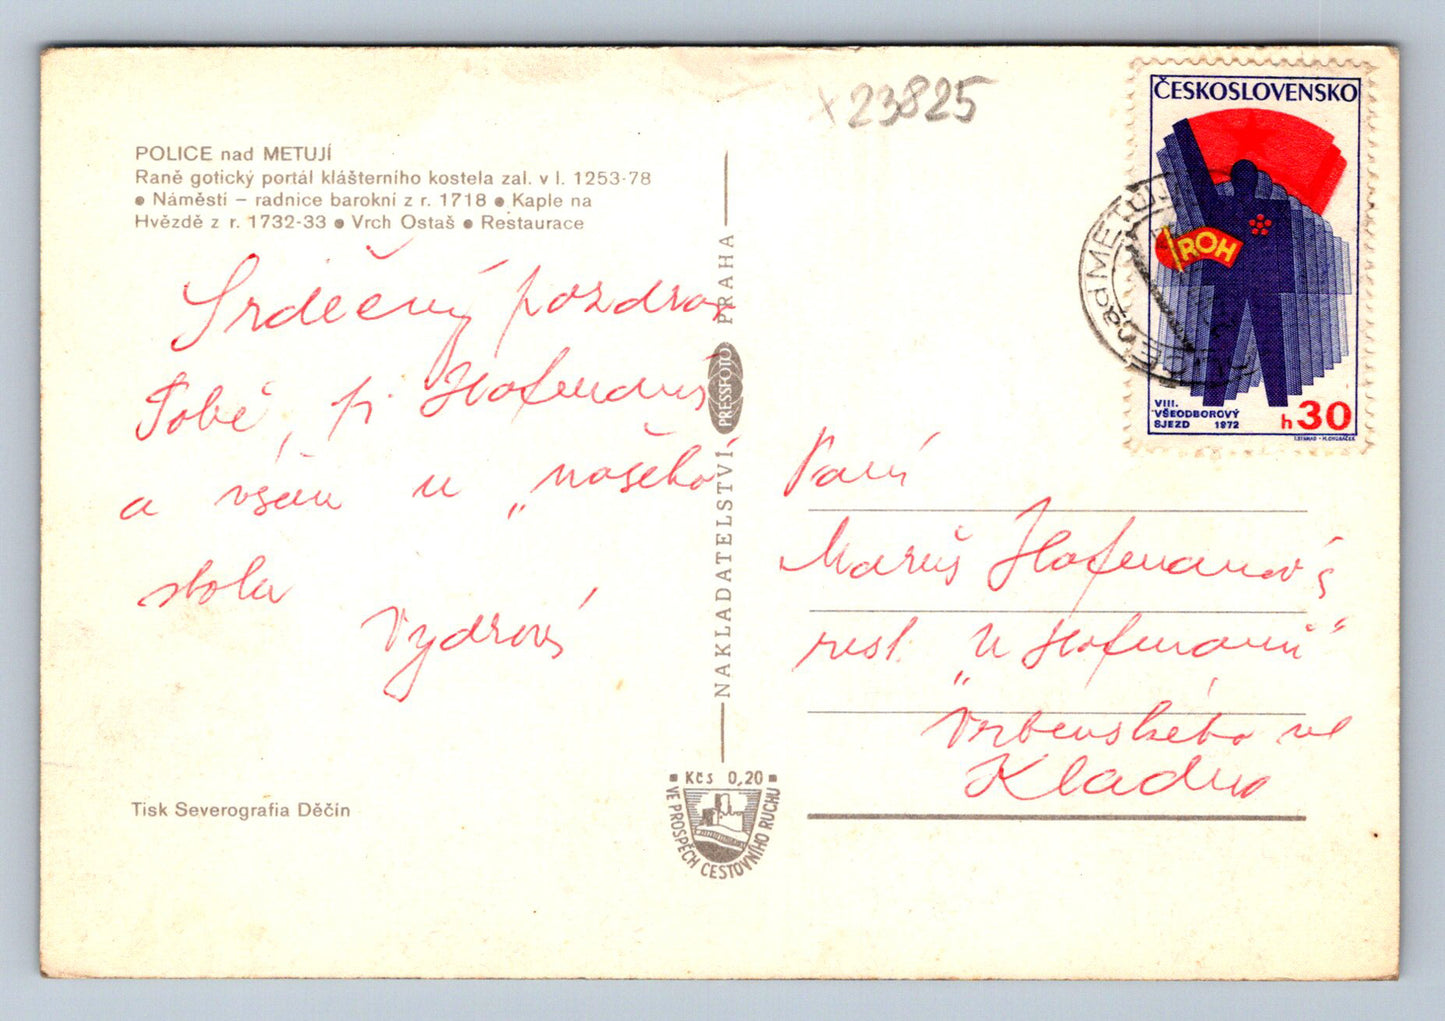 x 23825
POLICE nad METUJÍ
Raně gotický portál klášterního kostela zal. v l. 1253-78
● Náměstí – radnice barokní z r. 1718 ● Kaple na
Hvězdě z r. 1732-33 ● Vrch Ostaš ● Restaurace
Srdečný pozdrav
Tobě, pí Hofmanús
a všem u „našeho
stolu
Vydrová
Tisk Severografia Děčín
NAKLADATELSTVÍ PRESSFOTO PRAHA
Kčs 0,20
VE PROSPĚCH CESTOVNÍHO RUCHU
ČESKOSLOVENSKO
ROH
VIII.
VŠEODBOROVÝ
SJEZD 1972
h 30
nad METUJÍ
Paní
Maruš Hofmanová
rest. „U Hofmanů“
Vrbenského ul
Kladno